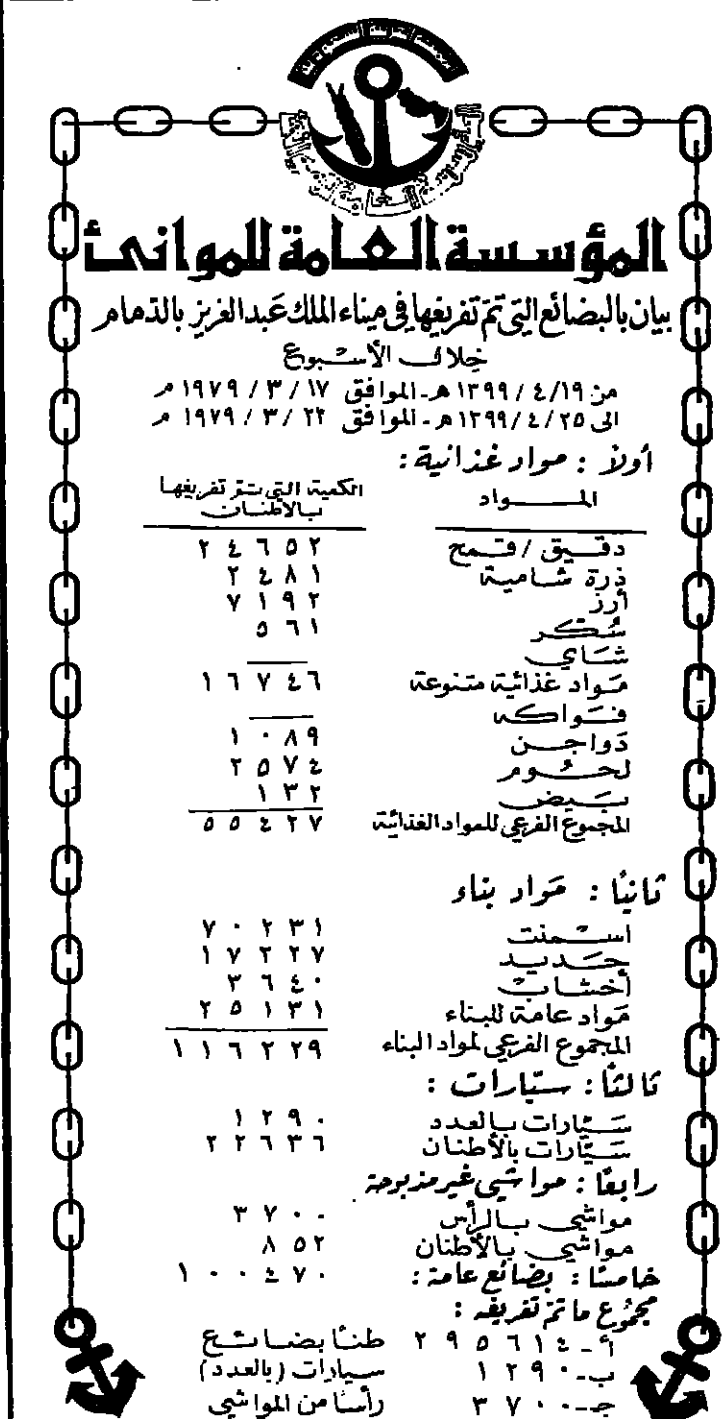 المؤسسة العامة للموانئ
بيان بالبضائع التي تم تفريغها في ميناء الملك عبد العزيز بالدمام
خلال الأسبوع
من ١٣٩٩/٤/١٩ هـ ـ الموافق ١٩٧٩/٣/١٧ م
الى ١٣٩٩/٤/٢٥ هـ ـ الموافق ١٩٧٩/٣/٢٢ م
أولاً : مواد غذائية :
المــــواد الكمية التي تم تفريغها بالاطنان
دقيق / قمح ٢٤٦٥٢
ذرة شامية ٢٤٨١
أرز ٧١٩٢
سُكر ٥٦١
شاي ــــ
مواد غذائية متنوعة ١٦٧٤٦
فواكه ــــ
دواجن ١٠٨٩
لحوم ٢٥٧٤
بيض ١٣٢
المجموع الفرعي للمواد الغذائية ٥٥٤٢٧
ثانيًا : مواد بناء
اسمنت ٧٠٢٣١
حديد ١٧٢٢٧
أخشاب ٣٦٤٠
مواد عامة للبناء ٢٥١٣١
المجموع الفرعي لمواد البناء ١١٦٢٢٩
ثالثًا : سيّارات :
سيّارات بالعدد ١٢٩٠
سيّارات بالأطنان ٢٢٦٣٦
رابعًا : مواشي غير مذبوحة
مواشي بالرأس ٣٧٠٠
مواشي بالأطنان ٨٥٢
خامسًا : بضائع عامة : ١٠٠٤٧٠
مجموع ما تم تفريغه :
أ ـ ٢٩٥٦١٤ طنًا بضائع
ب ـ ١٢٩٠ سيارات (بالعدد)
جـ ـ ٣٧٠٠ رأسًا من المواشي